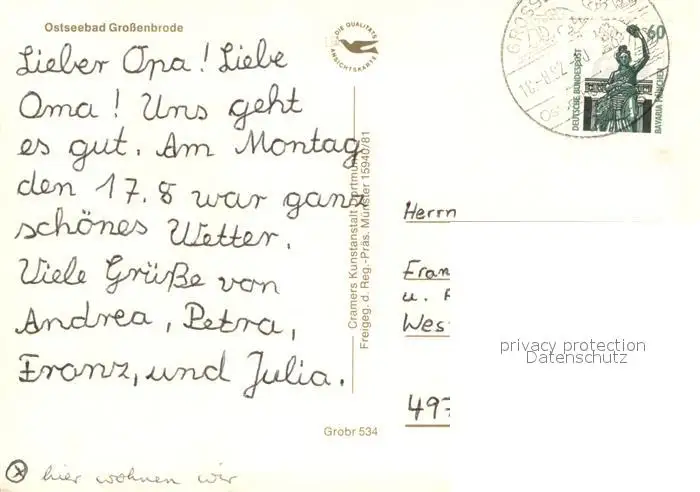 Ostseebad Großenbrode
DIE QUALITÄTS
ANSICHTSKARTE
Lieber Opa! Liebe
Oma! Uns geht
es gut. Am Montag
den 17.8 war ganz
schönes Wetter.
Viele Grüße von
Andrea, Petra,
Franz, und Julia.
hier wohnen wir
Cramers Kunstanstalt Dortmund
Freigeg. d. Reg.-Präs. Münster 15940/81
Grobr 534
60
DEUTSCHE BUNDESPOST
BAVARIA MÜNCHEN
Herrn
Fran
u.
Wes
497
privacy protection
Datenschutz